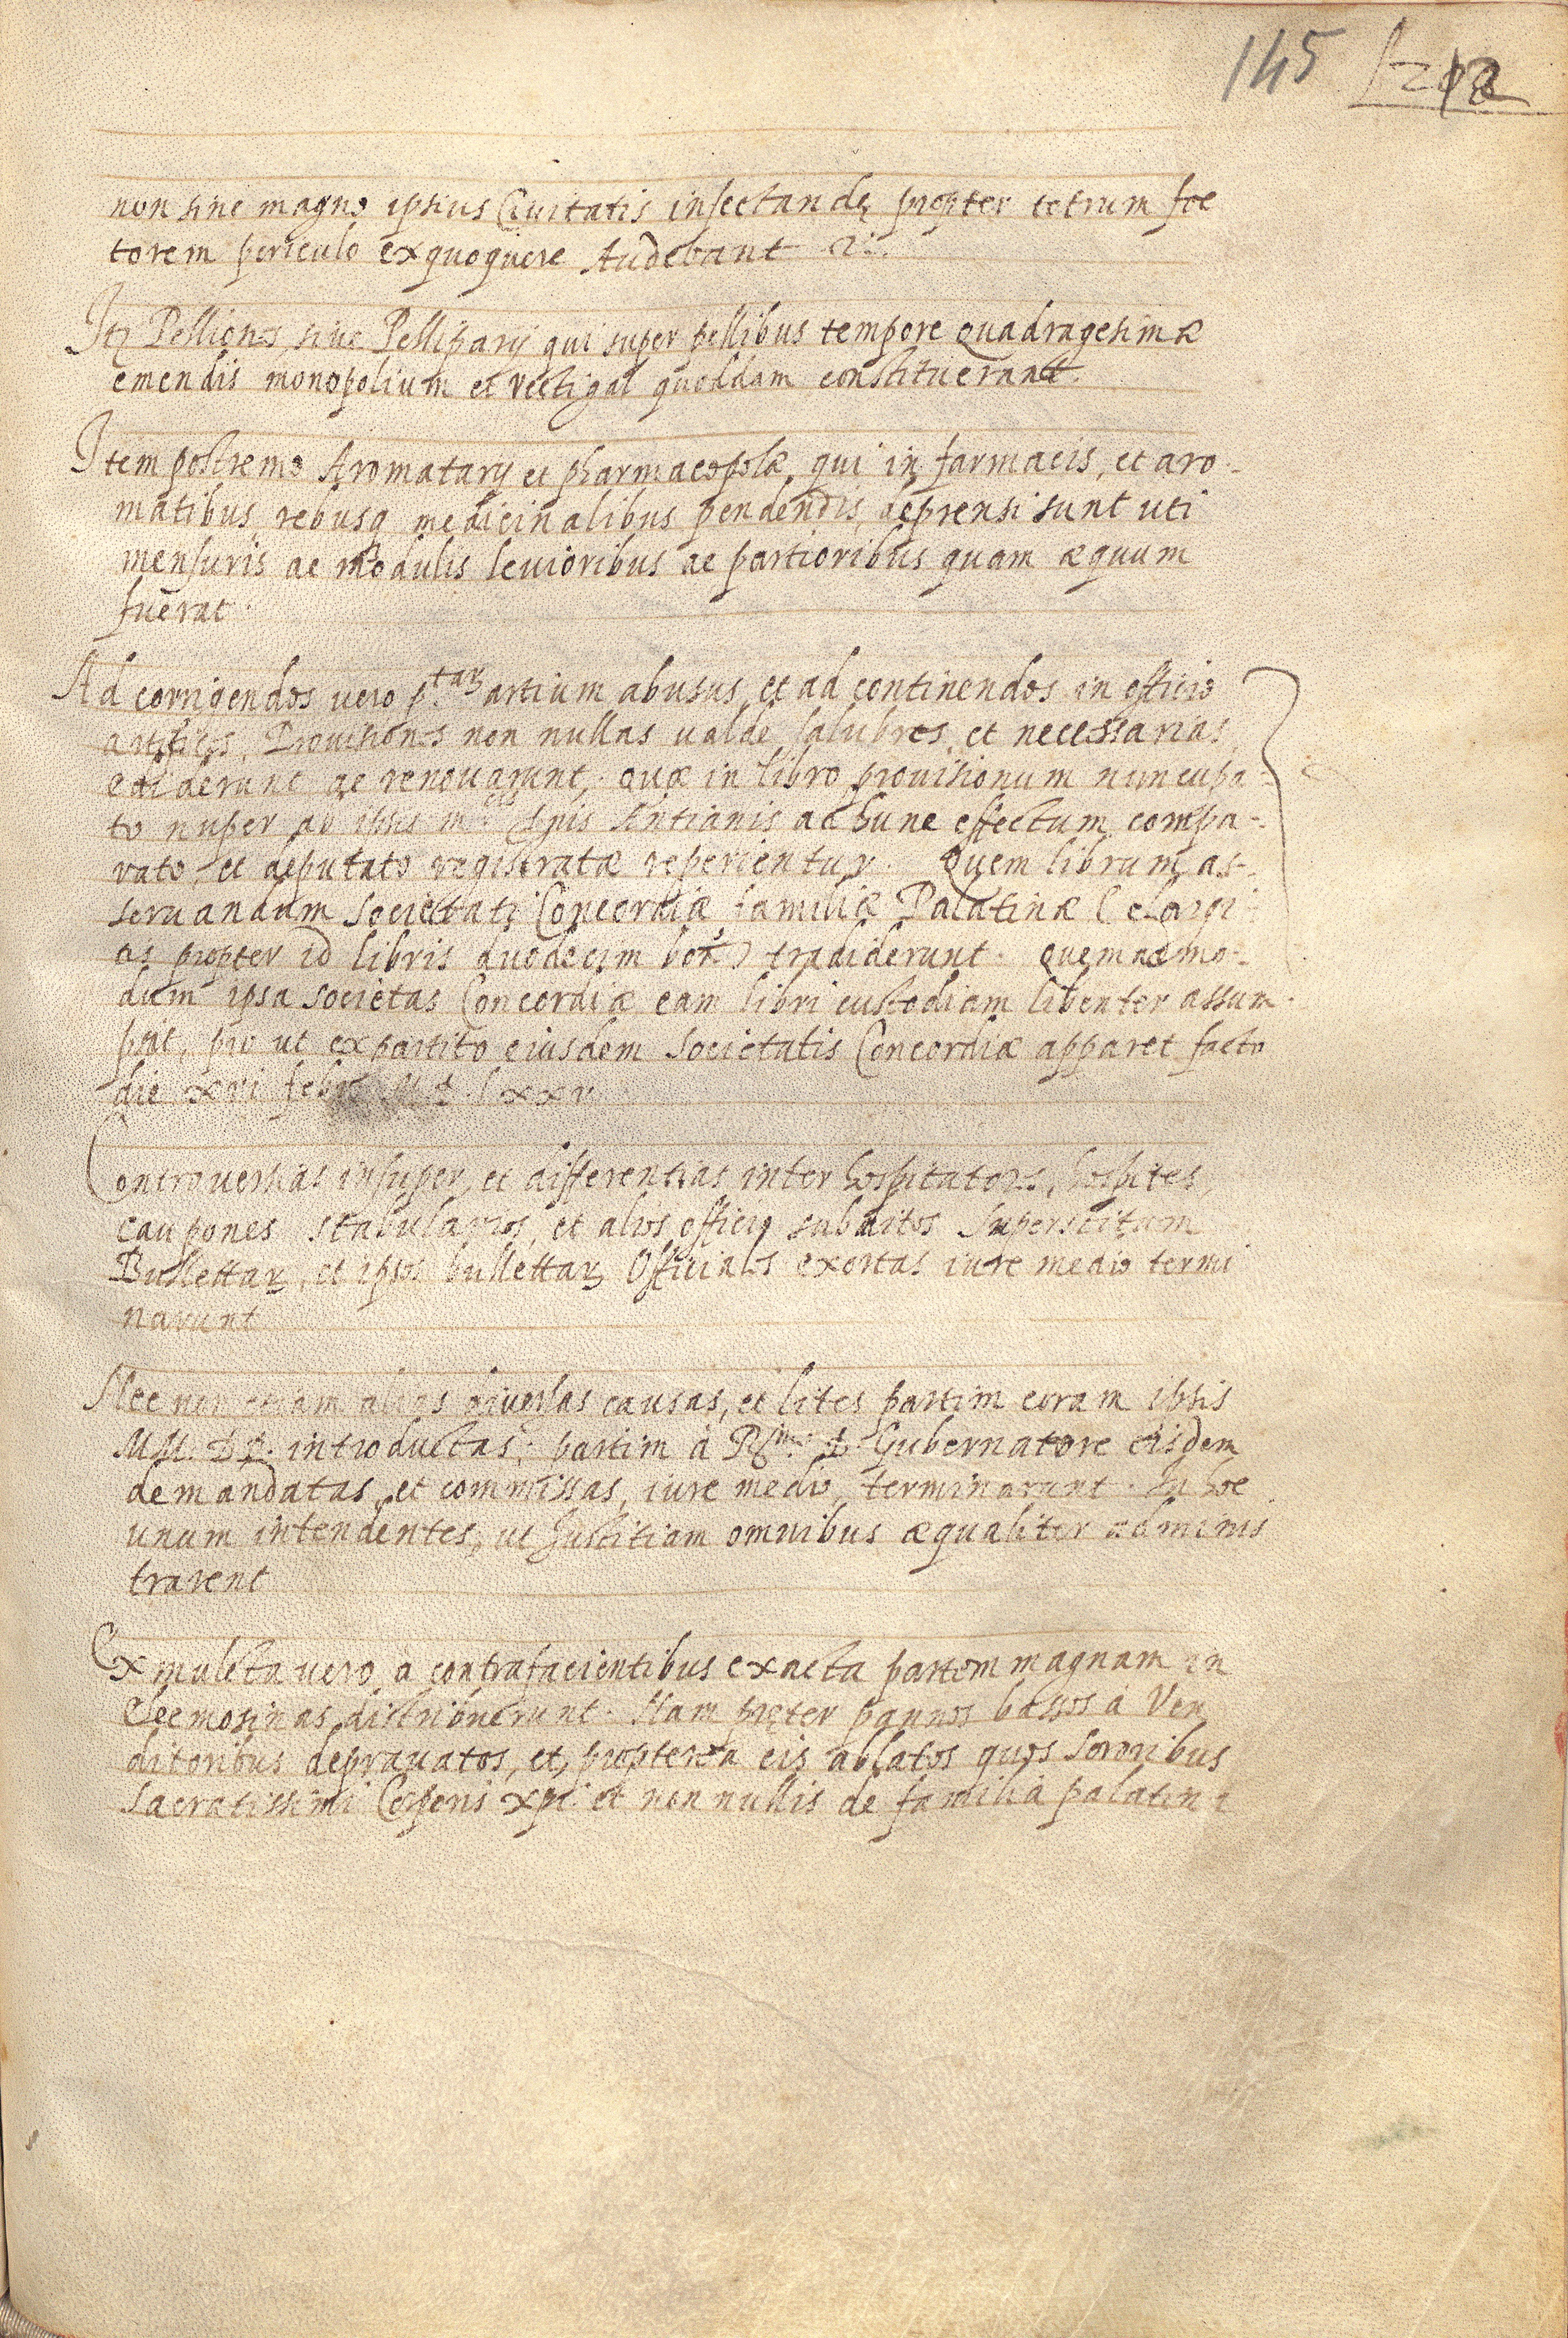 145
non sine magno ipsius Ciuitatis infectandę propter tetrum foe
torem periculo exquoquere Audebant
Itē Pelliones siue Pelliparij qui super pellibus tempore Quadragesimæ
emendis monopolium et vectigal quoddam constituerant.
Item postremo Aromatarij et pharmacopolæ, qui in farmacis, et aro-
matibus rebusq medicinalibus pendendis, deprensi sunt uti
mensuris ac modulis leuioribus ac partioribus quam æquum
fuerat.
Ad corrigendos vero artium abusus, et ad continendos in officio
artifices, Prouisiones non nullas ualde salubres, et necessarias,
ediderunt ac renouarunt, Quæ in libro prouisionum nuncupa-
to nuper ab ipsis Antianis ad hunc effectum compa-
rato, et deputato registratæ reperientur. Quem librum as-
seruandum Societati Concordiæ familiæ Palatinæ (elargi
is propter id libris duodecim) tradiderunt. Quemadmo-
dum ipsa Societas Concordiæ eam libri custodiam libenter assum-
psit, pro ut ex partito eiusdem Societatis Concordiæ apparet facto
die xvi febr. M D lxxv
Controuersias insuper, et differentias inter hospitatores, hospites,
caupones stabularios, et alios officij subditos
Bullettarꝝ, et ipsos bullettarꝝ Officiales exortas iure medio termi
narunt
Nec non etiam alias diuersas causas, et lites partim coram ipsis
MM. DD. introductas; partim à R.mo D. Gubernatore eisdem
demandatas, et commissas, iure medio, terminarunt. In hoc
unum intendentes, ut Justitiam omnibus æqualiter adminis
trarent
Ex mulcta uero à contrafacientibus exacta partem magnam in
Eleemosinas distribuerunt. Nam pręter pannos bassos à Ven
ditoribus deprauatos, et, propterea eis ablatos quos Sororibus
Sacratissimi Corporis xpi et non nullis de familia palatina